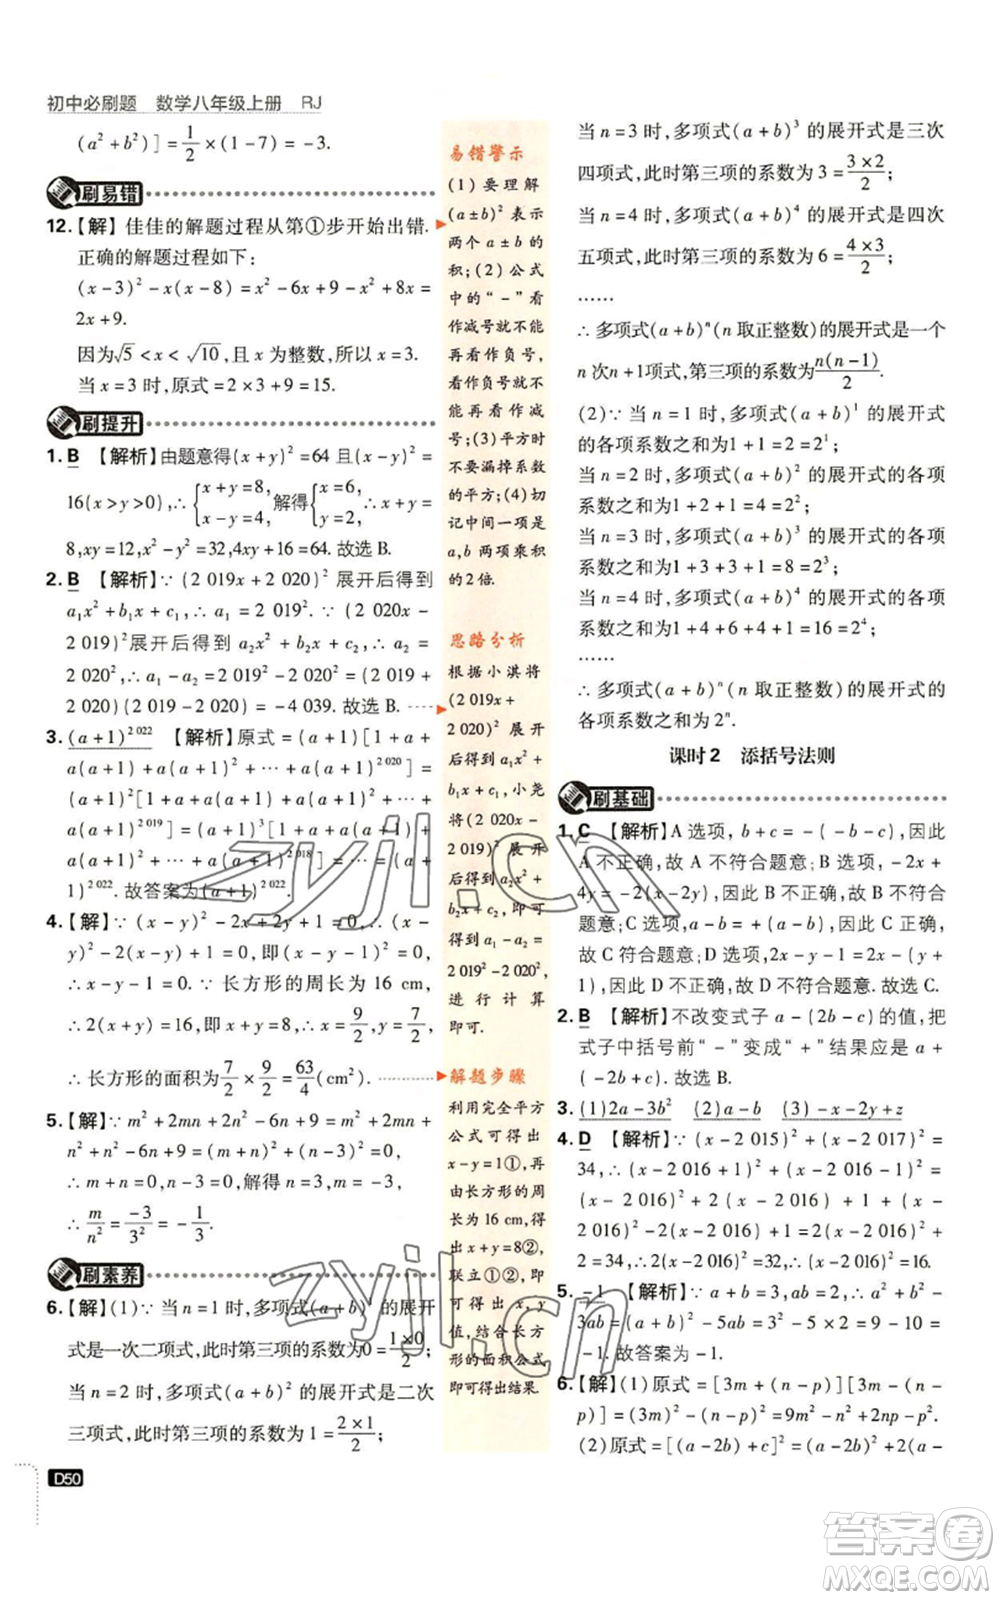 初中必刷题 数学八年级上册 RJ
(a²+b²)]=1/2×(1-7)=-3.
刷易错
12.【解】佳佳的解题过程从第①步开始出错.
正确的解题过程如下:
(x-3)²-x(x-8)=x²-6x+9-x²+8x=
2x+9.
因为√5<x<√10,且x为整数,所以x=3.
当x=3时,原式=2×3+9=15.
刷提升
1. B 【解析】由题意得(x+y)²=64且(x-y)²=
16(x>y>0),∴{x+y=8, x-y=4, 解得{x=6, y=2, ∴x+y=
8,xy=12,x²-y²=32,4xy+16=64.故选B.
2. B 【解析】∵(2 019x+2 020)²展开后得到
a₁x²+b₁x+c₁,∴a₁=2 019².∵(2 020x-
2 019)²展开后得到a₂x²+b₂x+c₂,∴a₂=
2 020²,∴a₁-a₂=2 019²-2 020²=(2 019+
2 020)(2 019-2 020)=-4 039.故选B.
3. (a+1)^2 022 【解析】原式=(a+1)[1+a+
a(a+1)+a(a+1)²+…+a(a+1)^2 020]=
(a+1)(a+1)[1+a+a(a+1)+…+
a(a+1)^2 019]=(a+1)³[1+a+a(a+1)+
a(a+1)²+…+a(a+1)^2 018]=…=
(a+1)^2 022.故答案为(a+1)^2 022.
4.【解】∵(x-y)²-2x+2y+1=0,∴(x-
y)²-2(x-y)+1=0,即(x-y-1)²=0,
∴x-y-1=0.∵长方形的周长为16 cm,
∴2(x+y)=16,即x+y=8,∴x=9/2,y=7/2,
∴长方形的面积为7/2×9/2=63/4(cm²).
5.【解】∵m²+2mn+2n²-6n+9=0,∴m²+2mn+
n²+n²-6n+9=0,∴(m+n)²+(n-3)²=0,
∴m+n=0,n-3=0,∴m=-3,n=3,
∴m/n²=-3/3²=-1/3.
刷素养
6.【解】(1)∵当n=1时,多项式(a+b)¹的展开
式是一次二项式,此时第三项的系数为0=1×0/2;
当n=2时,多项式(a+b)²的展开式是二次
三项式,此时第三项的系数为1=2×1/2;
D50
易错警示
(1)要理解
(a±b)²表示
两个a±b的
积;(2)公式
中的“-”看
作减号就不能
再看作负号,
看作负号就不
能再看作减
号;(3)平方时
不要漏掉系数
的平方;(4)切
记中间一项是
a,b两项乘积
的2倍.
思路分析
根据小淇将
(2 019x+
2 020)²展开
后得到a₁x²+
b₁x+c₁,小尧
将(2 020x-
2 019)²展开
后得到a₂x²+
b₂x+c₂,即可
得到a₁-a₂=
2 019²-2 020²,
进行计算
即可.
解题步骤
利用完全平方
公式可得出
x-y=1①,再
由长方形的周
长为16 cm,得
出x+y=8②,
联立①②,即
可得出x,y
值,结合长方
形的面积公式
即可得出结果.
当n=3时,多项式(a+b)³的展开式是三次
四项式,此时第三项的系数为3=3×2/2;
当n=4时,多项式(a+b)⁴的展开式是四次
五项式,此时第三项的系数为6=4×3/2;
……
∴多项式(a+b)ⁿ(n取正整数)的展开式是一个
n次n+1项式,第三项的系数为n(n-1)/2.
(2)∵当n=1时,多项式(a+b)¹的展开式
的各项系数之和为1+1=2=2¹;
当n=2时,多项式(a+b)²的展开式的各项
系数之和为1+2+1=4=2²;
当n=3时,多项式(a+b)³的展开式的各项
系数之和为1+3+3+1=8=2³;
当n=4时,多项式(a+b)⁴的展开式的各项
系数之和为1+4+6+4+1=16=2⁴;
……
∴多项式(a+b)ⁿ(n取正整数)的展开式的
各项系数之和为2ⁿ.
课时2 添括号法则
刷基础
1. C 【解析】A选项,b+c=-(-b-c),因此
A不正确,故A不符合题意;B选项,-2x+
4y=-2(x-2y),因此B不正确,故B不符合
题意;C选项,a-b=+(a-b),因此C正确,
故C符合题意;D选项,2x-y-1=2x-(y+
1),因此D不正确,故D不符合题意.故选C.
2. B 【解析】不改变式子a-(2b-c)的值,把
式子中括号前“-”变成“+”结果应是a+
(-2b+c).故选B.
3. (1)2a-3b² (2)a-b (3)-x-2y+z
4. D 【解析】∵(x-2 015)²+(x-2 017)²=
34,∴(x-2 016+1)²+(x-2 016-1)²=
34,(x-2 016)²+2(x-2 016)+1+(x-
2 016)²-2(x-2 016)+1=34,2(x-2 016)²+
2=34,∴2(x-2 016)²=32,∴(x-2 016)²=16.
5. -1 【解析】∵a+b=3,ab=2,∴a²+b²-
3ab=(a+b)²-5ab=3²-5×2=9-10=
-1.故答案为-1.
6.【解】(1)原式=[3m+(n-p)][3m-(n-
p)]=(3m)²-(n-p)²=9m²-n²+2np-p².
(2)原式=[(a-2b)+c]²=(a-2b)²+2(a-
zyjl.cn
zyjl.cn
答案圈
MXQE.COM